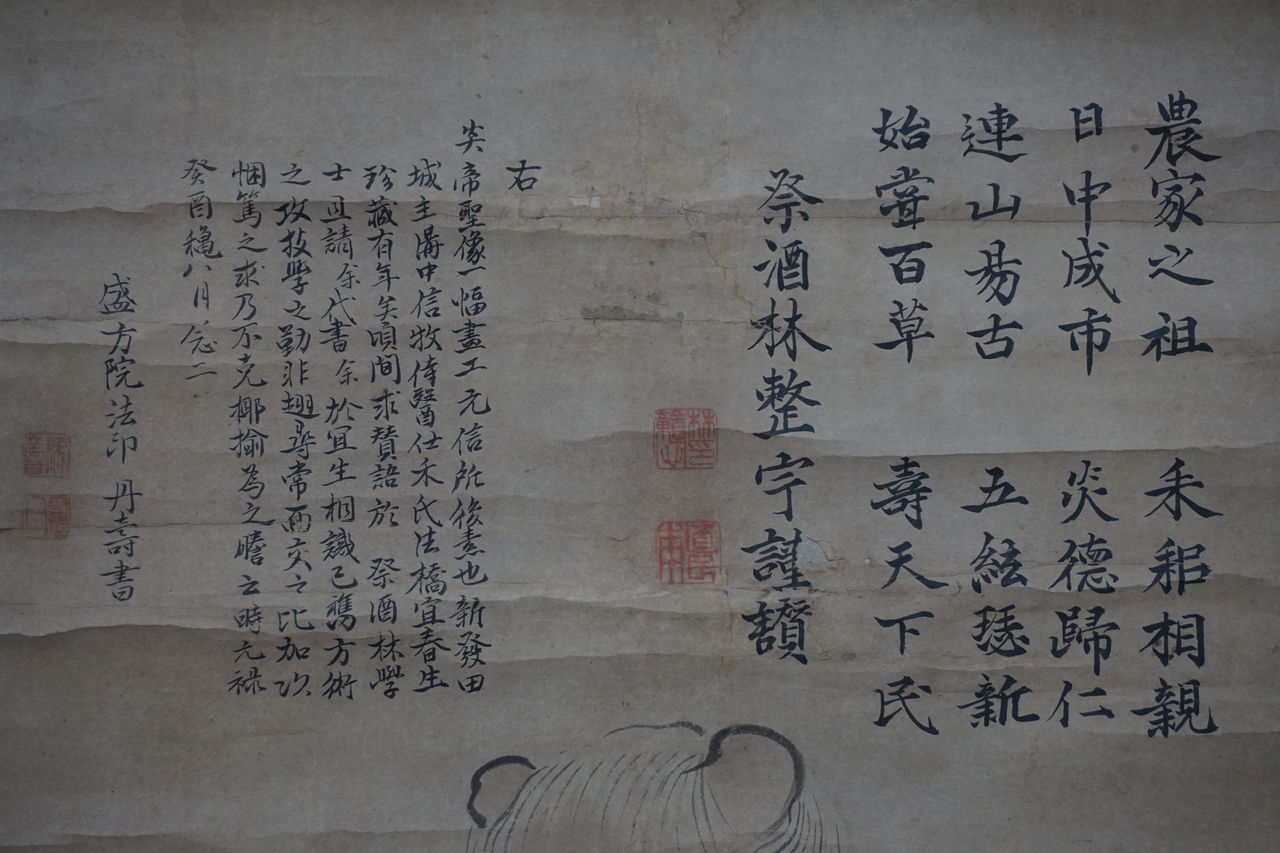 農家之祖 耒耜相親
日中成市 炎德歸仁
連山易古 五絃瑟新
始嘗百草 壽天下民
祭酒林整宇謹讃
右
炎帝聖像一幅畫工元信所後素也新發田
城主溝中信牧侍醫仕禾氏法橋宜春生
珍藏有年矣頃間求賛語於 祭酒林學
士且請余代書余於宜生相識已舊方術
之攻技學之勤非翅尋常面交之比加以
悃篤之求乃不克揶揄為之贍云時元祿
癸酉龝八月念二
盛方院法印 丹壽書